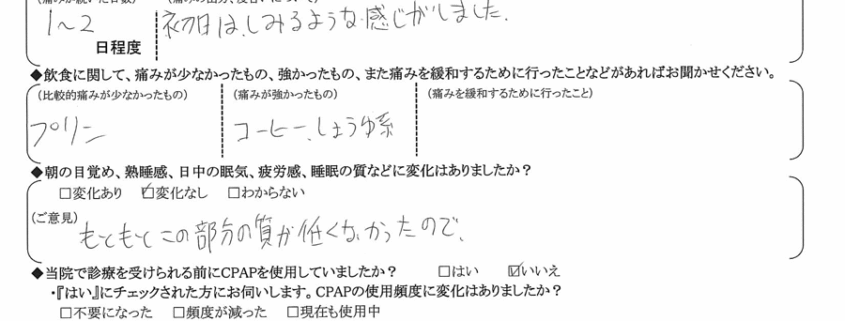 1～2
初日は、しみるような感じがしました。
日程度
◆飲食に関して、痛みが少なかったもの、強かったもの、また痛みを緩和するために行ったことなどがあればお聞かせください。
(比較的痛みが少なかったもの) (痛みが強かったもの) (痛みを緩和するために行ったこと)
プリン コーヒー、しょうゆ系
◆朝の目覚め、熟睡感、日中の眠気、疲労感、睡眠の質などに変化はありましたか？
□変化あり ☑変化なし □わからない
(ご意見)
もともとこの部分の質が低くなかったので、
◆当院で診療を受けられる前にCPAPを使用していましたか？ □はい ☑いいえ
・『はい』にチェックされた方にお伺いします。CPAPの使用頻度に変化はありましたか？
□不要になった □頻度が減った □現在も使用中